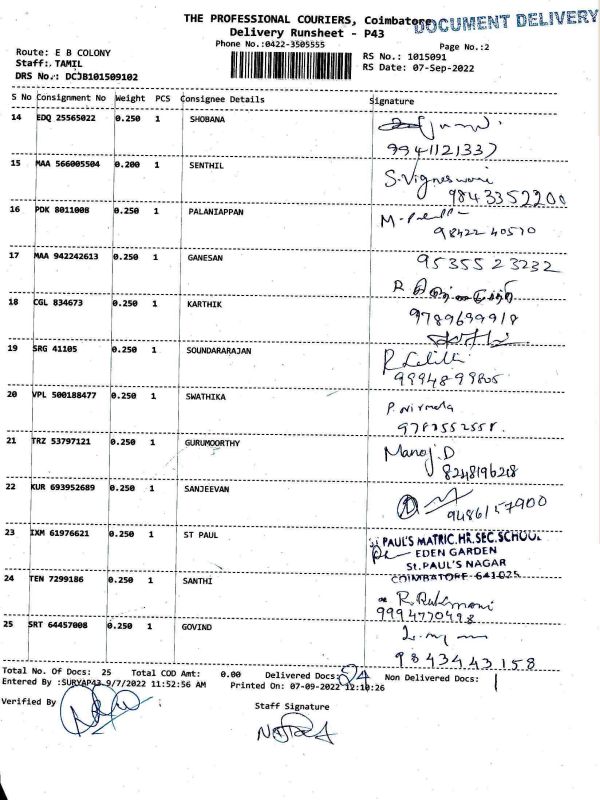 THE PROFESSIONAL COURIERS, Coimbatore
DOCUMENT DELIVERY
Delivery Runsheet - P43
Phone No.:0422-3505555
Page No.:2
Route: E B COLONY
RS No.: 1015091
Staff: TAMIL
RS Date: 07-Sep-2022
DRS No.: DCJB101509102
S No Consignment No Weight PCS Consignee Details Signature
14 EDQ 25565022 0.250 1 SHOBANA
9941121337
15 MAA 566005504 0.200 1 SENTHIL S.Vigneswari
9843352200
16 PDK 8011008 0.250 1 PALANIAPPAN
98422 40570
17 MAA 942242613 0.250 1 GANESAN 95355 23232
18 CGL 834673 0.250 1 KARTHIK
9789699918
19 SRG 41105 0.250 1 SOUNDARARAJAN R Lalitha
9994899805
20 VPL 500188477 0.250 1 SWATHIKA P. Nirmala
21 TRZ 53797121 0.250 1 GURUMOORTHY Manoj.D
8248196218
22 KUR 693952689 0.250 1 SANJEEVAN
9486157900
23 IXM 61976621 0.250 1 ST PAUL St PAUL'S MATRIC.HR.SEC.SCHOOL
EDEN GARDEN
St.PAUL'S NAGAR
COIMBATORE-641025
24 TEN 7299186 0.250 1 SANTHI R. Rukmani
9994770498
25 SRT 64457008 0.250 1 GOVIND
9843443158
Total No. Of Docs: 25 Total COD Amt: 0.00 Delivered Docs: 24 Non Delivered Docs: 1
Entered By :SURYAP43 9/7/2022 11:52:56 AM Printed On: 07-09-2022 12:10:26
Verified By Staff Signature